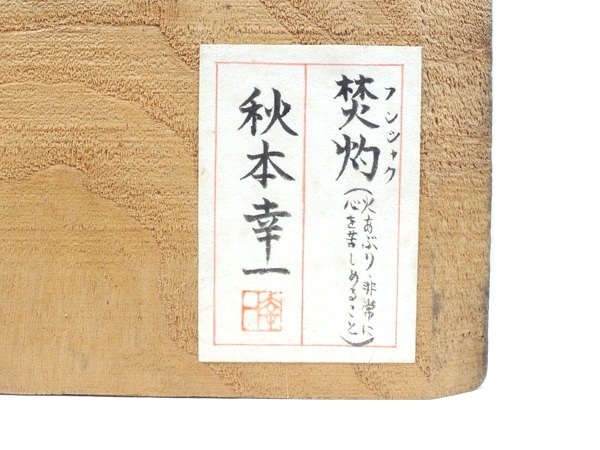 焚灼
フンシャク
(火あぶり・非常に
心を苦しめること)
秋本幸一